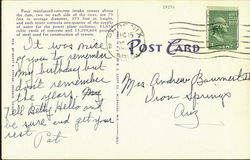 Four reinforced-concrete intake towers above
the dam, two on each side of the river,
feet in average diameter, 375 feet in height,
and each tower controls one-quarter of the supply
of water for the power plant turbines.
cubic yards of concrete and 15,299,604 pounds
of steel used for construction of towers.
29251
POST CARD
It was nice
of you to remember
My birthday but
don't remember
the years.
Tell Betty Hello and
be sure and get your
rest
Pat
Mrs. Andrew Baumert
Iron Springs
Ariz